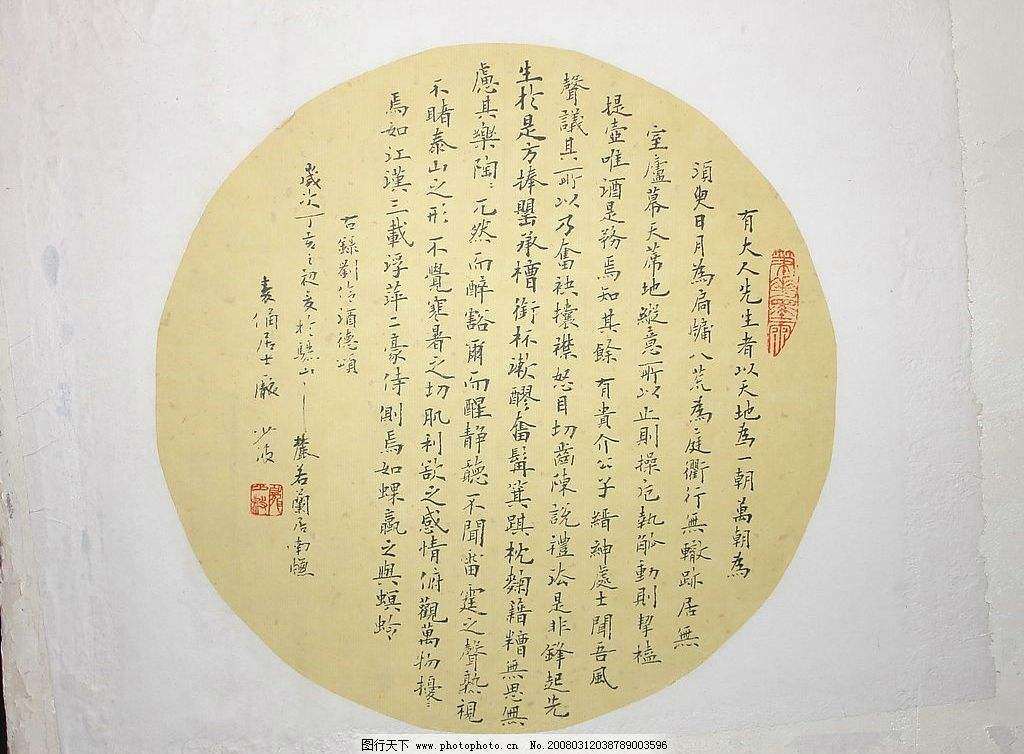 有大人先生者以天地為一朝萬朝為
須臾日月為扃牖八荒為庭衢行無轍跡居無
室廬幕天蓆地縱意所以止則操卮執觚動則挈榼
提壺唯酒是務焉知其餘有貴介公子縉紳處士聞吾風
聲議其所以乃奮袂攘襟怒目切齒陳說禮法是非鋒起先
生於是方捧罌承槽銜杯漱醪奮髯箕踑枕麴藉糟無思無
慮其樂陶〻兀然而醉豁爾而醒靜聽不聞雷霆之聲熟視
不睹泰山之形不覺寒暑之切肌利欲之感情俯觀萬物擾〻
焉如江漢三載浮萍二豪侍側焉如蜾蠃之與螟蛉
右錄劉伶酒德頌
歲次丁亥之初於驪山麓若蘭居南
俑居士 少波
图行天下 www.photophoto.cn No.20080312038789003596